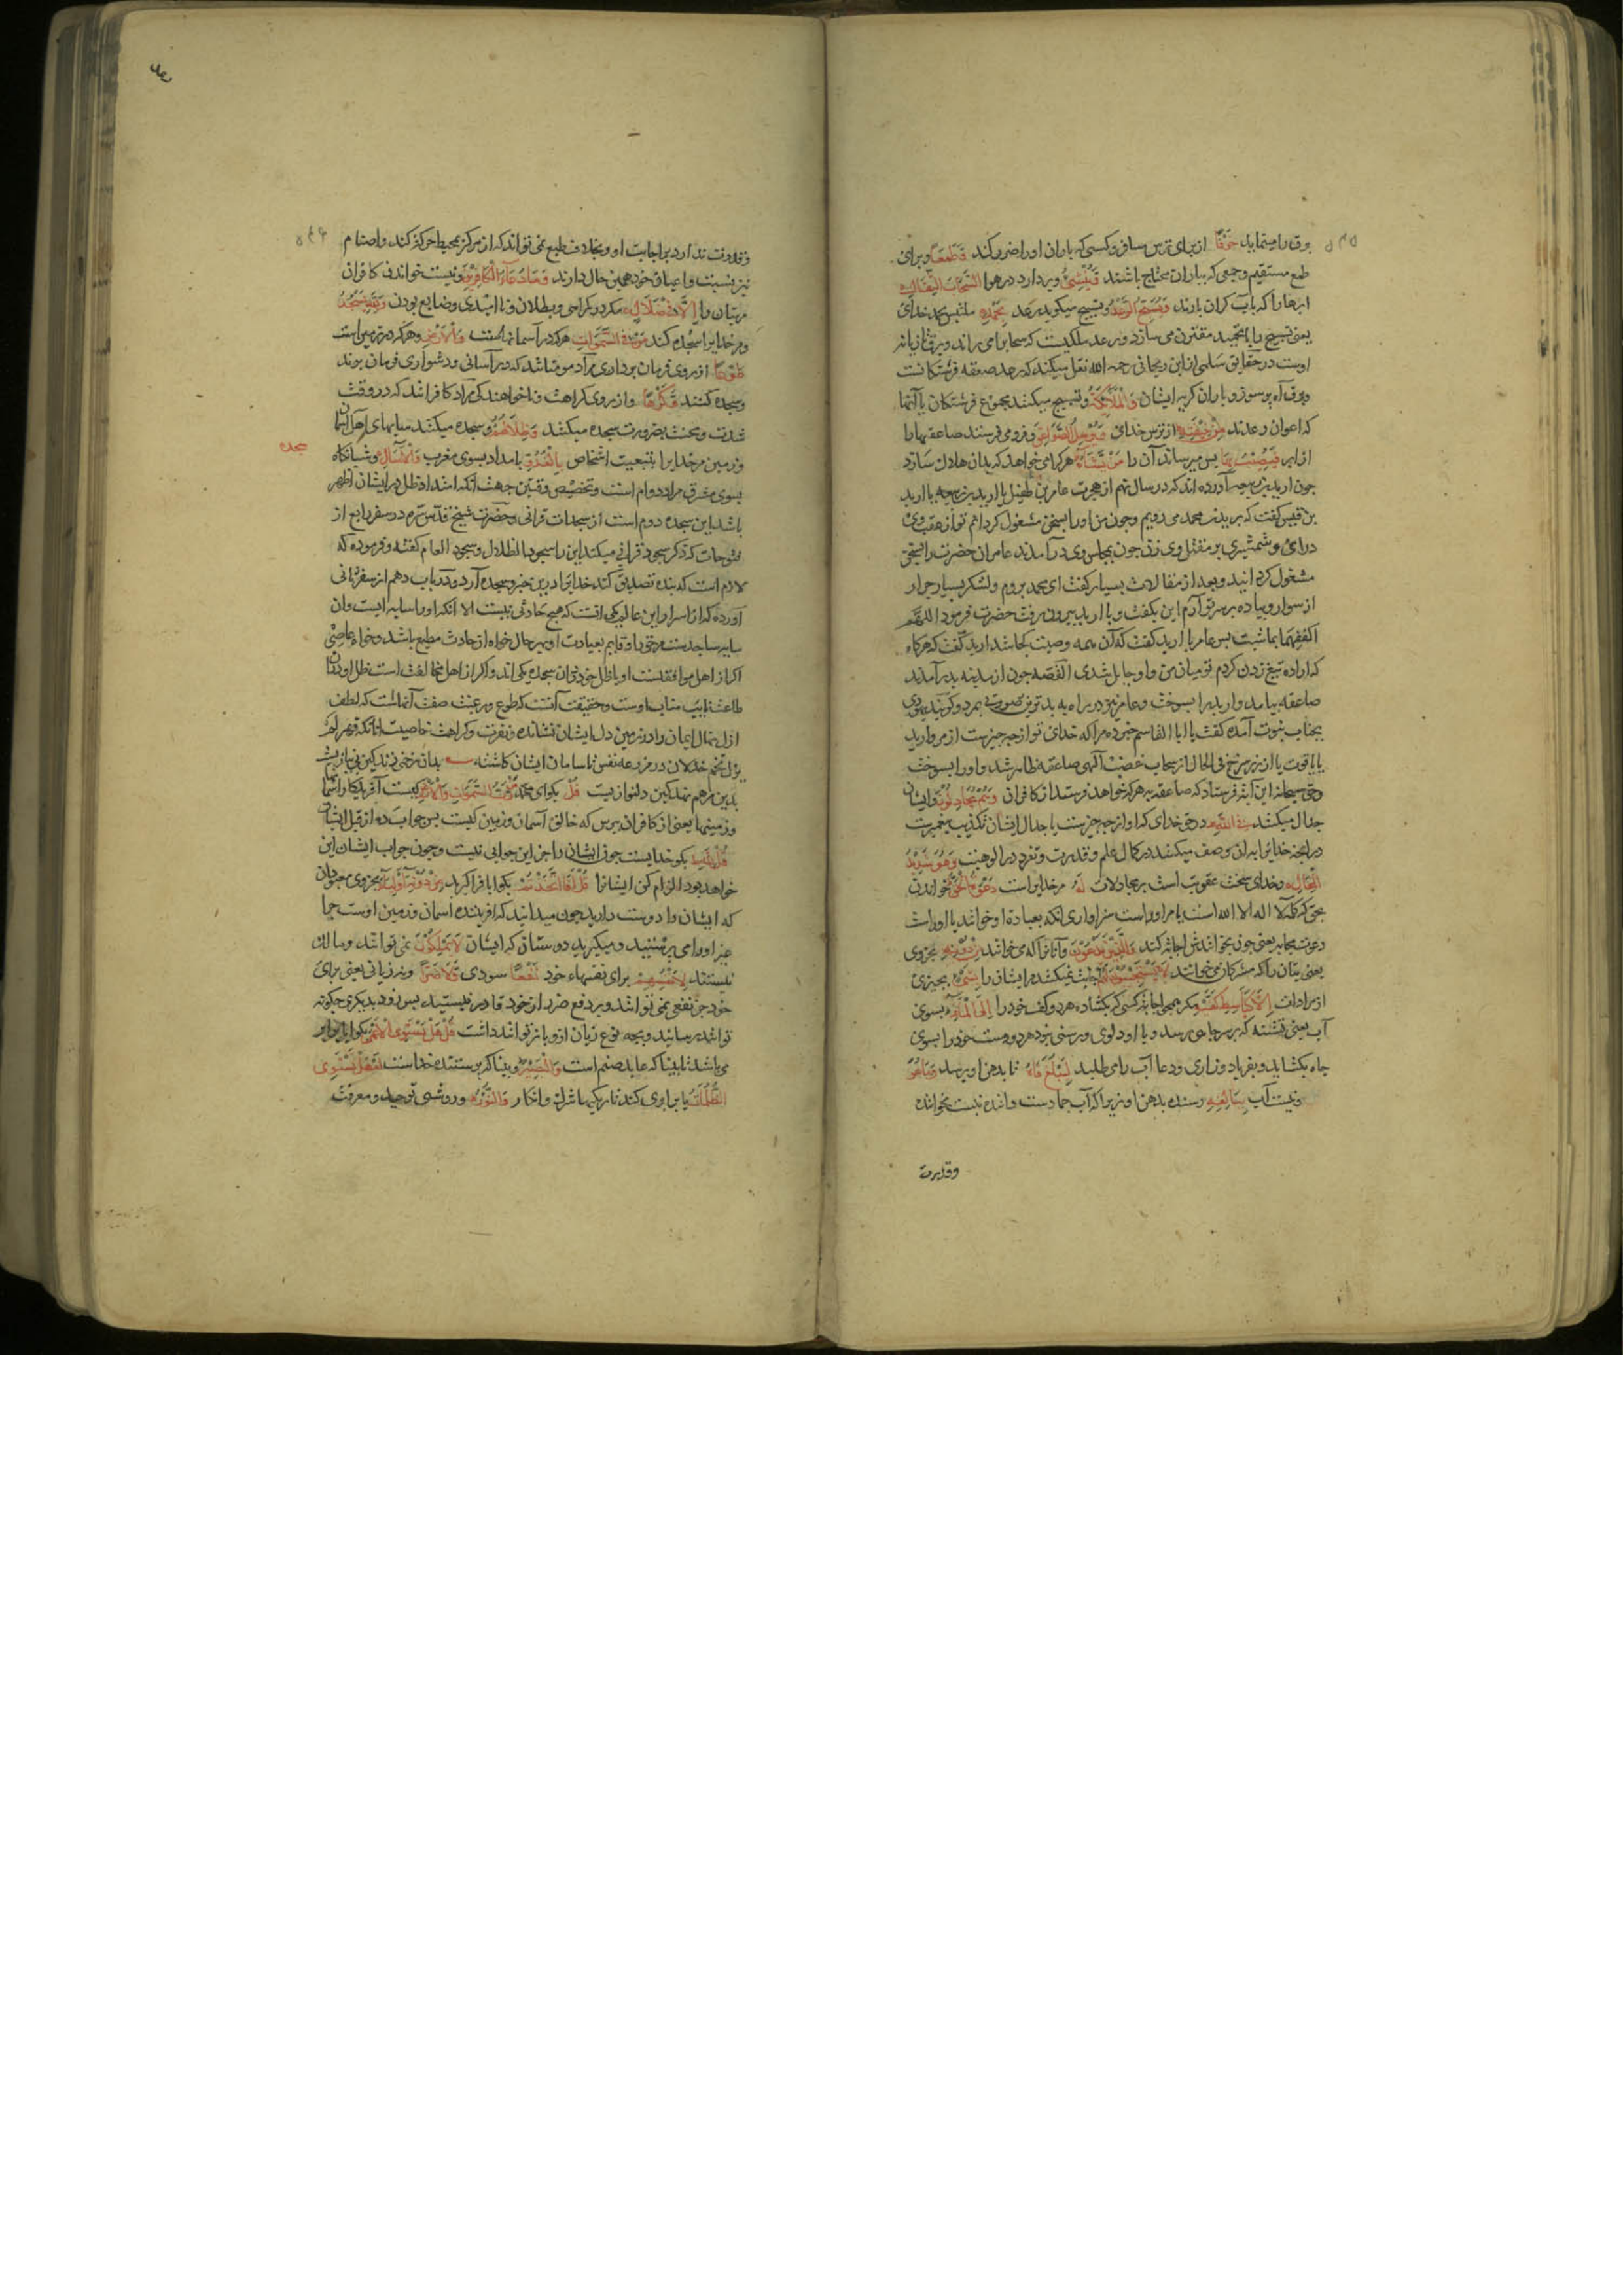 برق را مینماید خَوْفًا از برای ترس مسافر و کسی که باران او را ضرر کند وَطَمَعًا و برای
طمع مستقیم و جمعی که بباران محتاج باشند وَیُنْشِئُ و بردارد در هوا السَّحَابَ الثِّقَالَ
ابرها را که بآب گران بارند وَیُسَبِّحُ الرَّعْدُ و تسبیح میکوید رعد بِحَمْدِهِ ملتبس بحمد خدای
یعنی تسبیح را با تحمید مقترن می سازد و رعد ملکیست که سحاب را می راند و برق تازیانه
اوست در حقایق سلمی از ابن ریحانی رحمه الله نقل میکند که رعد صعقه فرشتکانست
و برق آه پر سوز و باران کریه ایشان وَالْمَلَائِكَةُ و تسبیح میکنند مجموع فرشتکان یا آنها
که اعوان رعدند مِنْ خِیفَتِهِ از ترس خدای وَیُرْسِلُ الصَّوَاعِقَ و فرو می فرستد صاعقها را
از ابر فَیُصِیبُ بِهَا پس میرساند آن را مَنْ یَشَاءُ هر کرا می خواهد که بدان هلاک سازد
چون اربد بن ربیعه آورده اند که در سال نهم از هجرت عامر بن طفیل با اربد بن ربیعه یا اربد
بن قیس کفت که بر یثرب محمد می رویم و چون من او را بسخن مشغول کردانم تو از عقب وی
درای و شمشیری بر مقتل وی زن چون بمجلس وی در آمدند عامر آن حضرت را بسخن
مشغول کردانید و بعد از مقالات بسیار کفت ای محمد بروم و لشکر بسیار جرار
از سوار و پیاده بر سر تو آرم این بکفت و با اربد بیرون رفت حضرت فرمود اللهم
اکفهما بماشئت پس عامر با اربد کفت که آن همه وصیت کجا شد اربد کفت که هرکاه
که اراده تیغ زدن کردم تو میان من و او حایل شدی القصه چون از مدینه بدر آمدند
صاعقه بیامد و اربد را بسوخت و عامر نیز در راه به بدترین صورتی بمرد و کویند یهودی
بجناب نبوت آمده کفت یا ابا القاسم خبر ده مرا که خدای تو از چه چیزست از مروارید
یا یاقوت یا از زر سرخ فی الحال از سحاب غضب آلهی صاعقه ظاهر شد و او را بسوخت
و حق سبحانه این آیه فرستاد که صاعقه بهر که خواهد فرستد از کافران وَهُمْ یُجَادِلُونَ و ایشان
جدال میکنند فِی اللَّهِ در حق خدای که او از چه چیزست یا جدال ایشان تکذیب پیغمبرست
در انچه خدایرا بدان وصف میکنند در کمال علم و قدرت و تفرد در الوهیت وَهُوَ شَدِیدُ
الْمِحَالِ و خدای سخت عقوبت است بر مجادلان لَهُ مر خدایراست دَعْوَةُ الْحَقِّ خواندن
بحق که کلمه لا اله الا الله است یا مر او راست سزاواری انکه بعباده او خوانند یا او راست
دعوت مجابه یعنی چون بخوانندش اجابت کند وَالَّذِینَ یَدْعُونَ و آنانرا که می خوانند مِنْ دُونِهِ بجز وی
یعنی بتان را که مشرکان می خوانند لَا یَسْتَجِیبُونَ لَهُمْ اجابت نمیکنند مر ایشان را بِشَیْءٍ بچیزی
از مرادات إِلَّا كَبَاسِطِ كَفَّیْهِ مکر همچو اجابت کسی که بکشاده هر دو کف خود را إِلَى الْمَاءِ بسوی
آب یعنی تشنه که بر سر چاهی رسد و با او دلوی و رسنی نبود هر دو دست خود را بسوی
چاه بکشاید و بفریاد و زاری و دعا آب را می طلبد لِیَبْلُغَ فَاهُ تا بدهن او برسد وَمَا هُوَ
و نیست آب بِبَالِغِهِ رسنده بدهن او زیرا که آب جمادست و داننده نیست بخواننده
وقدرت
و قدرت ندارد بر اجابت او و بخلاف طبع نمی تواند که از مرکز بمحیط حرکت کند و اصنام
نیز نسبت با عیان خود همین حال دارند وَمَا دُعَاءُ الْكَافِرِینَ و نیست خواندن کافران
مر بتان را إِلَّا فِی ضَلَالٍ مکر در کمراهی و بطلان و نا امیدی و ضایع بودن وَلِلَّهِ یَسْجُدُ
و مر خدایرا سجده کند مَنْ فِی السَّمَاوَاتِ هر که در آسمانهاست وَالْأَرْضِ و هر که در زمین است
طَوْعًا از روی فرمان برداری مراد مومنانند که در آسانی و دشواری فرمان برند
و سجده کنند وَكَرْهًا و از روی کراهت و ناخواهندکی مراد کافرانند که در وقت
شدت و محنت بضرورت سجده میکنند وَظِلَالُهُمْ و سجده میکنند سایهای اهل آسمان
و زمین مر خدایرا بتبعیت اشخاص بِالْغُدُوِّ بامداد بسوی مغرب وَالْآصَالِ و شبانکاه
سجده
بسوی مشرق مراد دوام است و تخصیص وقتین جهت آنکه امتداد ظل در ایشان اظهر
باشد این سجده دوم است از سجدات قرانی و حضرت شیخ قدس سره در سفر رابع از
فتوحات که ذکر سجود قرانی میکند این را سجود الظلال و سجود العام کفته و فرموده که
لازم است که بنده تصدیق کند خدایرا درین خبر و سجده آرد و در باب دهم از سفر ثانی
آورده که از اسرار این عالم یکی انست که هیچ حادثی نیست الا انکه او را سایه ایست و آن
سایه ساجدست مر حق را و قایم بعبادت او بهر حال خواه از حادث مطیع باشد و خواه عاصی
اکر از اهل موافقتست او با ظل خود بر آن سجده یکی اند و اکر از اهل مخالفت است ظل او در آن
طاعت نایب مناب اوست و حقیقت آنست که طوع و رغبت صفت آنهاست که لطف
ازل نهال ایمان را در زمین دل ایشان نشانده و نفرت و کراهت خاصیت انانکه قهر لم
یزل تخم خذلان در مزرعه نفس ناسامان ایشان کاشته بدان زخمی زند کین بی نیازیست
بدین مرهم نهد کین دلنوازیست قُلْ بکو ای محمد مَنْ رَبُّ السَّمَاوَاتِ وَالْأَرْضِ کیست آفریدکار آسمانها
و زمینها یعنی از کافران بپرس که خالق آسمان و زمین کیست پس جواب ده از قبل ایشان
قُلِ اللَّهُ بکو خدایست چون ایشان را جز این جوابی نیست و چون جواب ایشان این
خواهد بود الزام کن ایشانرا قُلْ أَفَاتَّخَذْتُمْ بکو ایا فرا کرفتید مِنْ دُونِهِ أَوْلِیَاءَ بجز وی معبودان
که ایشان را دوست دارید چون میدانید که افریننده اسمان و زمین اوست چرا
غیر او را می پرستید و میکیرید دوستان که ایشان لَا یَمْلِكُونَ نمی توانند و مالک
نیستند لِأَنْفُسِهِمْ برای نفسهاء خود نَفْعًا سودی وَلَا ضَرًّا و نه زیانی یعنی برای
خود جز نفعی نمی توانند و بر دفع ضرر از خود قادر نیستند پس سود بدیکری چکونه
توانند رسانید و بچه نوع زیان ازو باز توانند داشت قُلْ هَلْ یَسْتَوِی الْأَعْمَى بکو ایا برابر
می باشد نابینا که عابد صنم است وَالْبَصِیرُ و بینا که پرستنده خداست أَمْ هَلْ تَسْتَوِی
الظُّلُمَاتُ یا برابری کند تاریکیها شرک و انکار وَالنُّورُ و روشنی توحید و معرفت